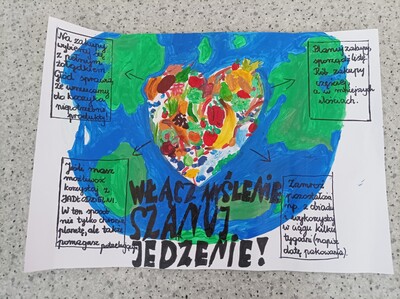 Na zakupy
wybieraj się
z pełnym
żołądkiem
Głód sprawia,
że wrzucamy
do koszyka
niepotrzebne
produkty!
Planuj zakupy,
sporządź listę.
Rób zakupy
częściej,
a w mniejszych
ilościach.
Jeśli masz
możliwość
korzystaj z
JADŁODZIELNI.
W ten sposób
nie tylko chronisz
planetę, ale także
pomagasz potrzebującym
Zamroź
pozostałości
np. z obiadu
i wykorzystaj
w ciągu kilku
tygodni (napisz
datę pakowania).
WŁĄCZ MYŚLENIE
SZANUJ
JEDZENIE!